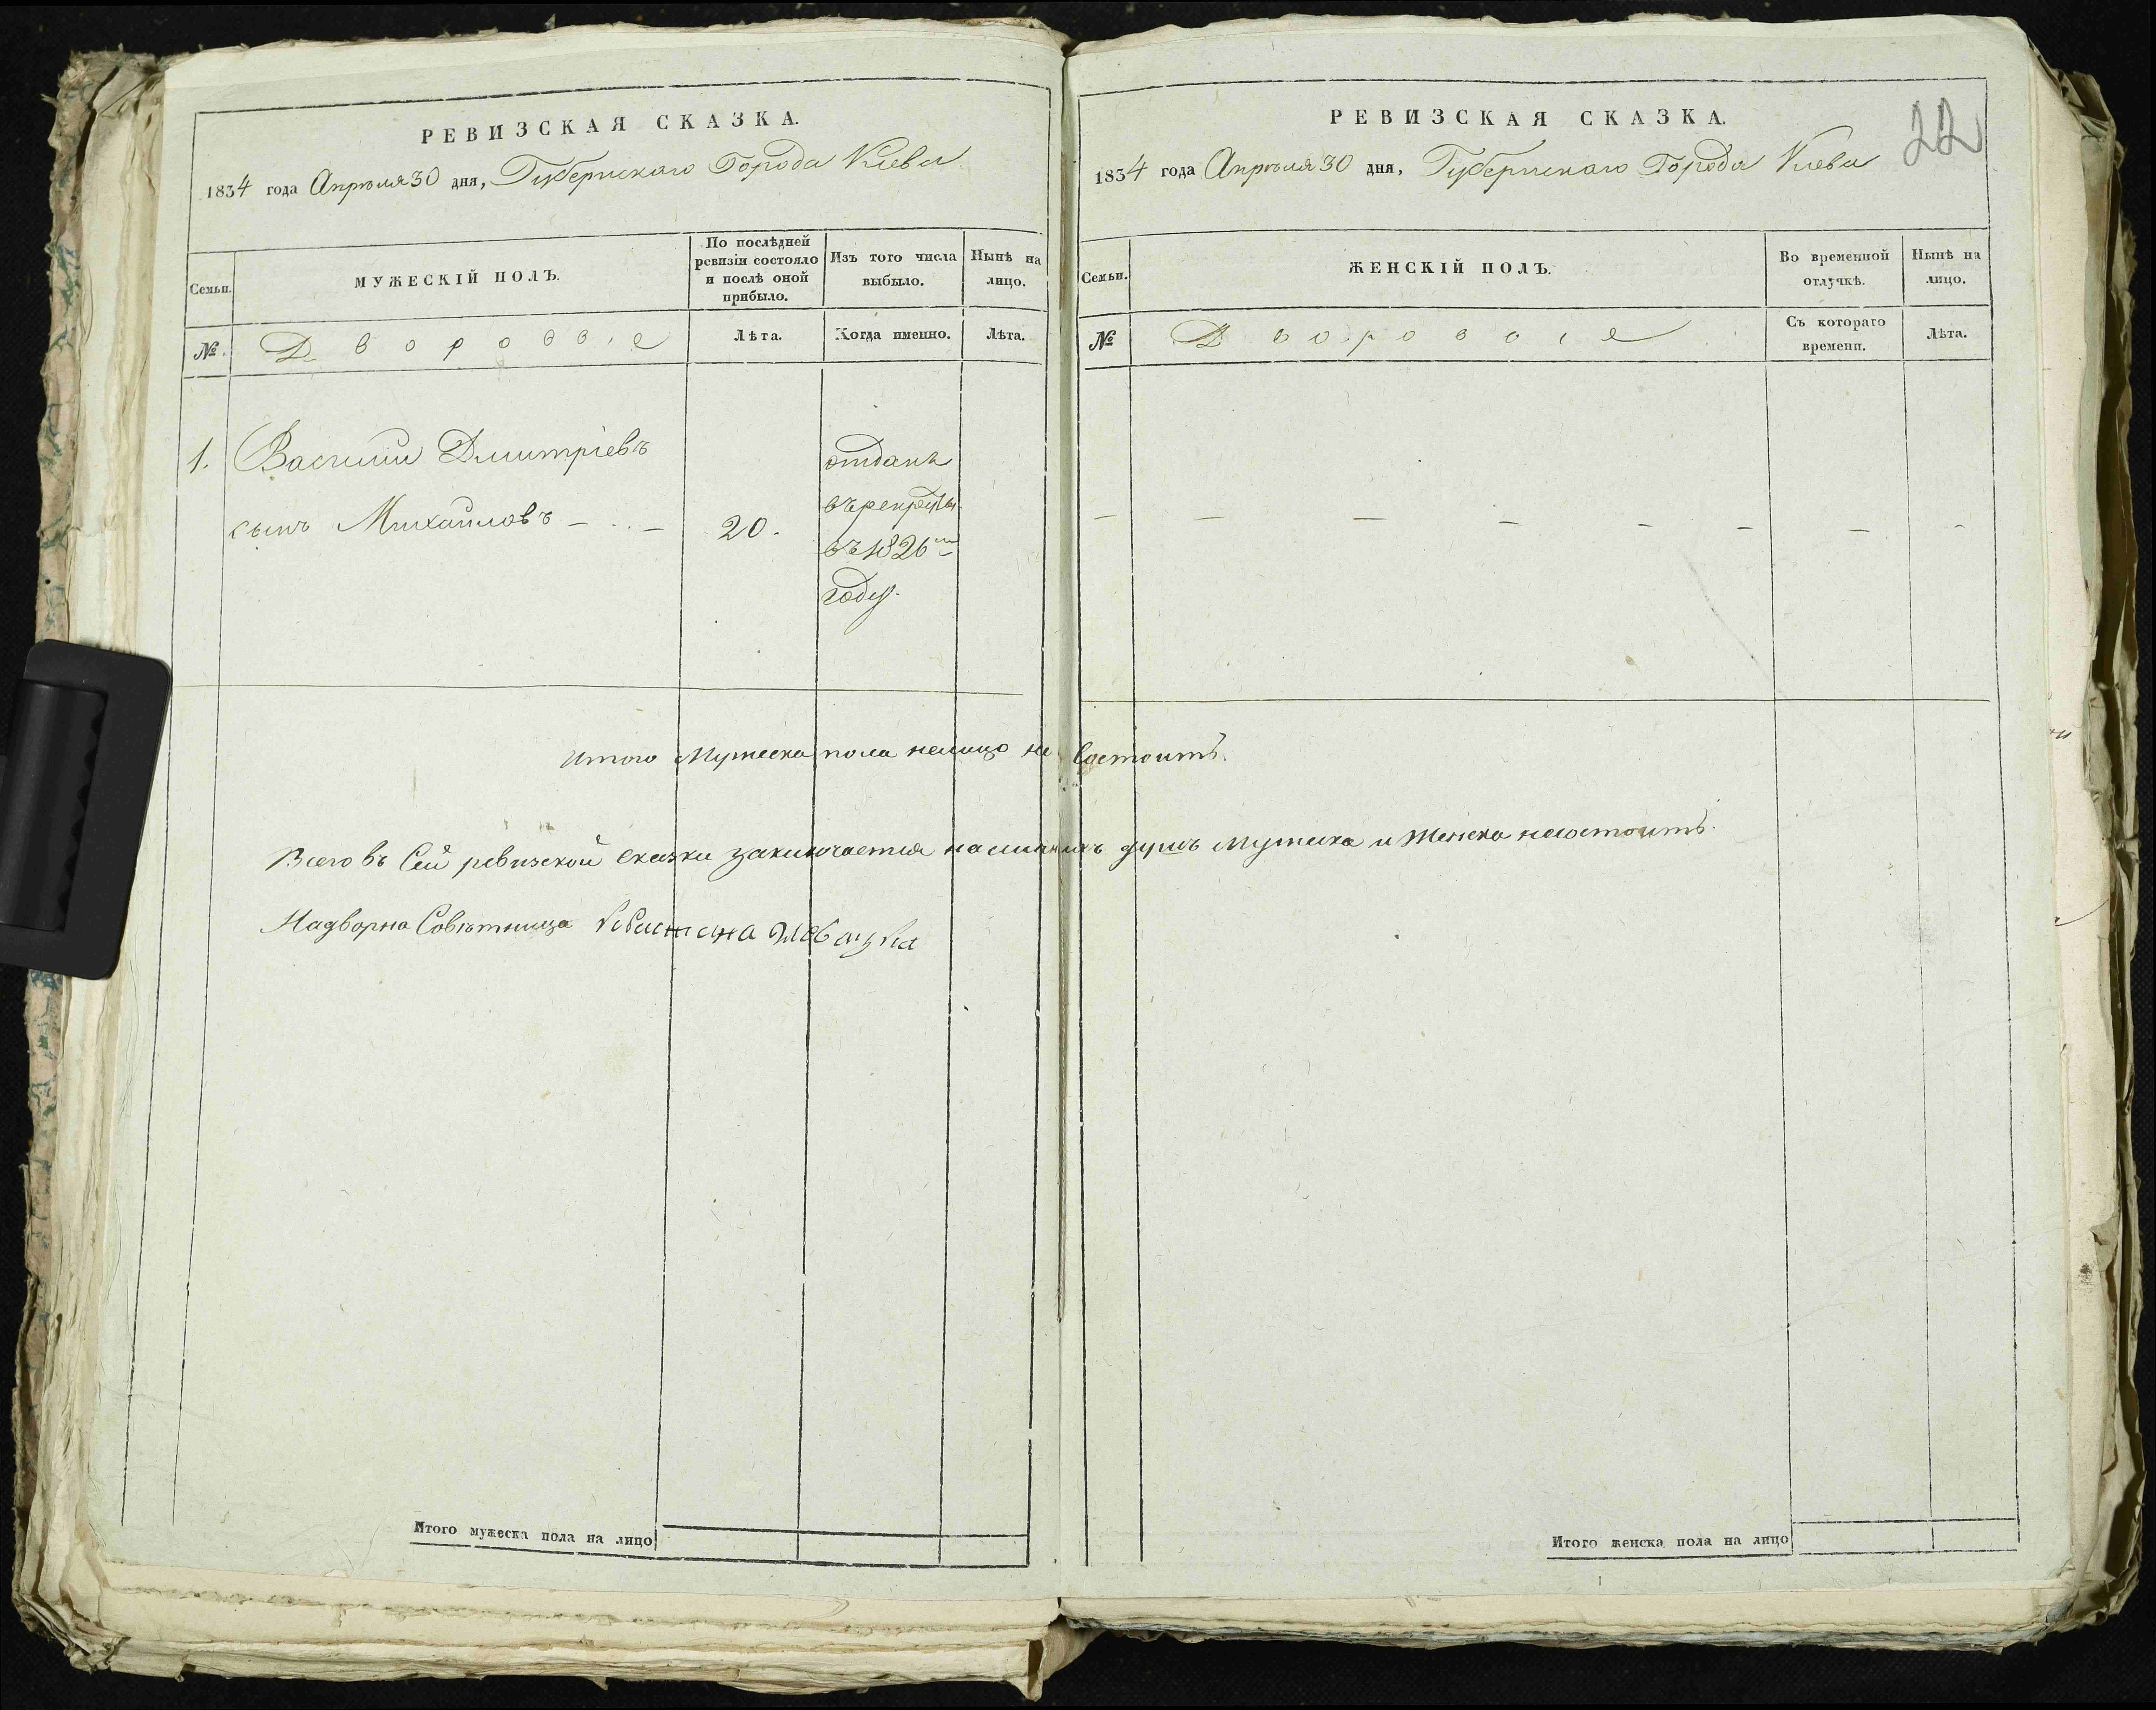 РЕВИЗСКАЯ СКАЗКА.
1834 года Апрѣля 30 дня, Губернскаго Города Киева
Семьи.
МУЖЕСКІЙ ПОЛЪ.
По послѣдней
ревизіи состояло
и послѣ оной
прибыло.
Изъ того числа
выбыло.
Нынѣ на
лицо.
№.
Дворовыe
Лѣта.
Когда именно.
Лѣта.
1. Василий Дмитріевъ
сынъ Михайловъ - . . -
20.
отданъ
въ рекруты
въ 1826мъ
году.
Итого Мужеска пола налицо не Состоитъ.
Всего въ Сей ревизской сказки заключается наличныхъ душъ мужеска и женска несостоитъ.
Надворна Совѣтница
Итого мужеска пола на лицо
РЕВИЗСКАЯ СКАЗКА.
22
1834 года Апрѣля 30 дня, Губернскаго Города Киева
Семьи.
ЖЕНСКІЙ ПОЛЪ.
Во временной
отлучкѣ.
Нынѣ на
лицо.
№
Дворовыe
Съ котораго
времени.
Лѣта.
- - - - - - - -
Итого женска пола на лицо